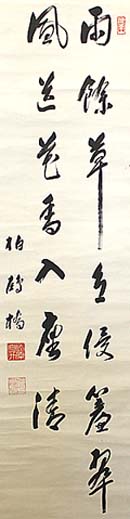 雨餘草色侵簾翠
風送花香入座清
柏鶴橋